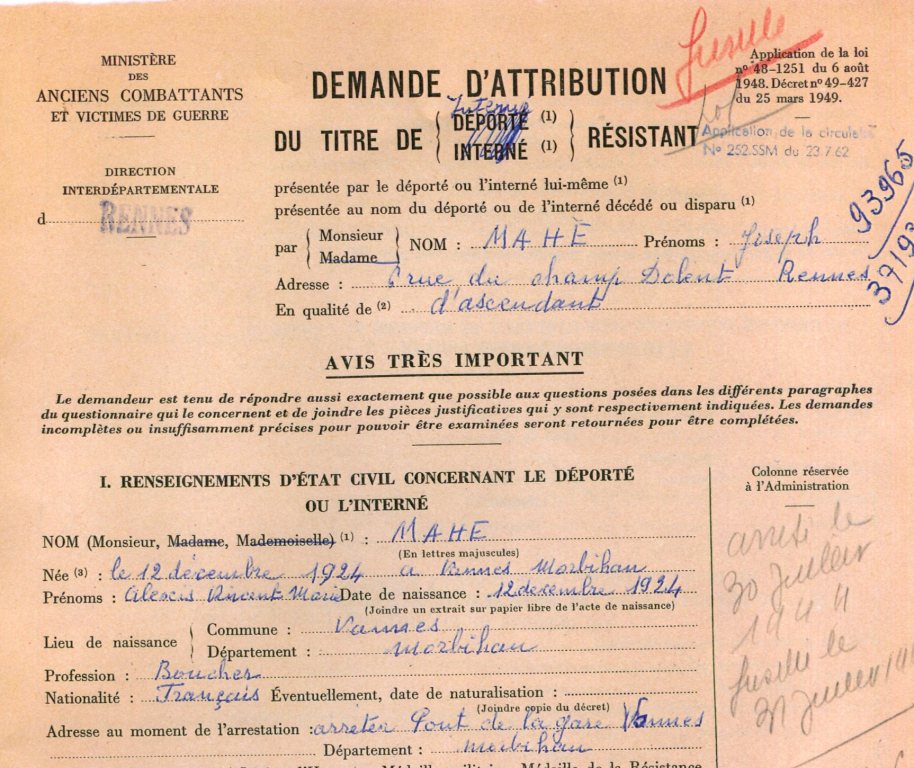 MINISTÈRE
DES
ANCIENS COMBATTANTS
ET VICTIMES DE GUERRE
DIRECTION
INTERDÉPARTEMENTALE
d RENNES
fusillé
Application de la loi
nº 48-1251 du 6 août
1948. Décret nº 49-427
du 25 mars 1949.
Application de la circulaire
Nº 252.SSM du 23.7.62
93965
DEMANDE D'ATTRIBUTION
Interné
DU TITRE DE { DÉPORTÉ (1) } RÉSISTANT
INTERNÉ (1)
présentée par le déporté ou l'interné lui-même (1)
présentée au nom du déporté ou de l'interné décédé ou disparu (1)
par { Monsieur } NOM : MAHÉ Prénoms : Joseph
Madame
Adresse : rue du champ Dolent Rennes
En qualité de (2) d'ascendant
AVIS TRÈS IMPORTANT
Le demandeur est tenu de répondre aussi exactement que possible aux questions posées dans les différents paragraphes
du questionnaire qui le concernent et de joindre les pièces justificatives qui y sont respectivement indiquées. Les demandes
incomplètes ou insuffisamment précises pour pouvoir être examinées seront retournées pour être complétées.
I. RENSEIGNEMENTS D'ÉTAT CIVIL CONCERNANT LE DÉPORTÉ
OU L'INTERNÉ
NOM (Monsieur, Madame, Mademoiselle) (1) : MAHE
(En lettres majuscules)
Née (3) : le 12 décembre 1924 a Vannes Morbihan
Prénoms : Alexis Vincent Marie Date de naissance : 12 decembre 1924
(Joindre un extrait sur papier libre de l'acte de naissance)
Lieu de naissance { Commune : Vannes
Département : morbihan
Profession : Boucher
Nationalité : Français Éventuellement, date de naturalisation :
(Joindre copie du décret)
Adresse au moment de l'arrestation : arrêter Pont de la gare Vannes
Département : morbihan
Colonne réservée
à l'Administration
arrêté le
30 Juillet
1944
fusillé le
31 Juillet